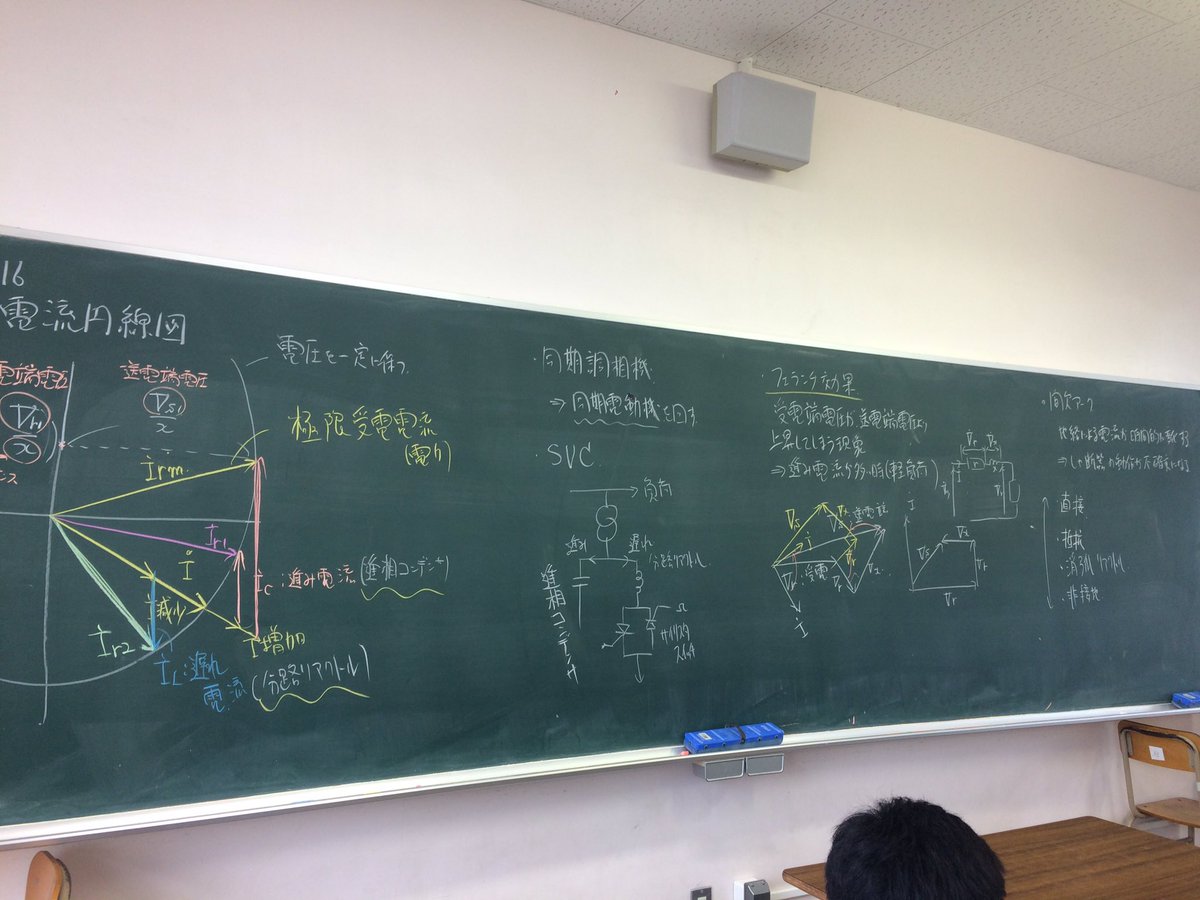 16
電流円線図
電圧を一定に保つ
電端電圧
送電端電圧
Vr
x
Vs
x
極限受電電流
(電力)
İrm
İr1
İ
İc:進み電流(進相コンデンサ)
減少
İ増加
İr2
İL:遅れ
電流(分路リアクトル)
・同期調相機
⇒同期電動機を回す
・SVC
負荷
進み
遅れ
分路リアクトル
進相コンデンサ
サイリスタ
スイッチ
・フェランチ効果
受電端電圧が送電端電圧より
上昇してしまう現象
⇒進み電流が多い時(軽負荷)
Vs
Vx
送電端
受電
Vr
Vr
Vx
İ
İ
Vs
Vx
Vr
Vr
・間欠アーク
地絡による電流が
⇒しゃ断器の動作が不確実になる
・直接
・抵抗
・消弧リアクトル
・非接地